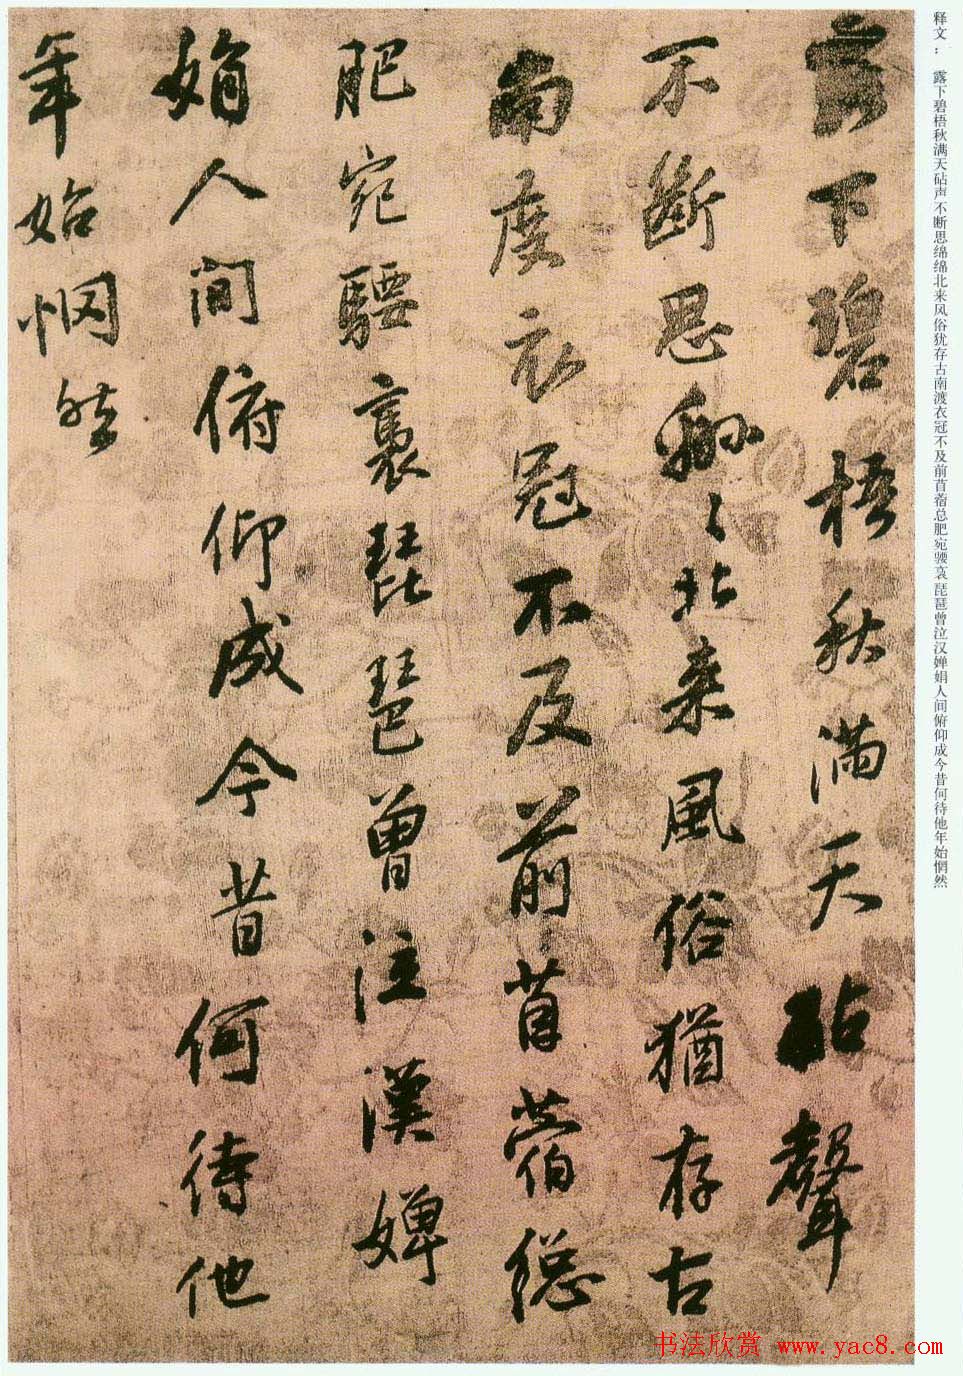 释文：露下碧梧秋满天砧声不断思绵绵北来风俗犹存古南渡衣冠不及前苜蓿总肥宛騕袅琵琶曾泣汉婵娟人间俯仰成今昔何待他年始惘然
露下碧梧秋滿天砧聲
不斷思綿〻北来風俗猶存古
南度衣冠不及前苜蓿總
肥宛騕褭琵琶曾泣漢婵
娟人間俯仰成今昔何待他
年始惘然
书法欣赏 www.yac8.com